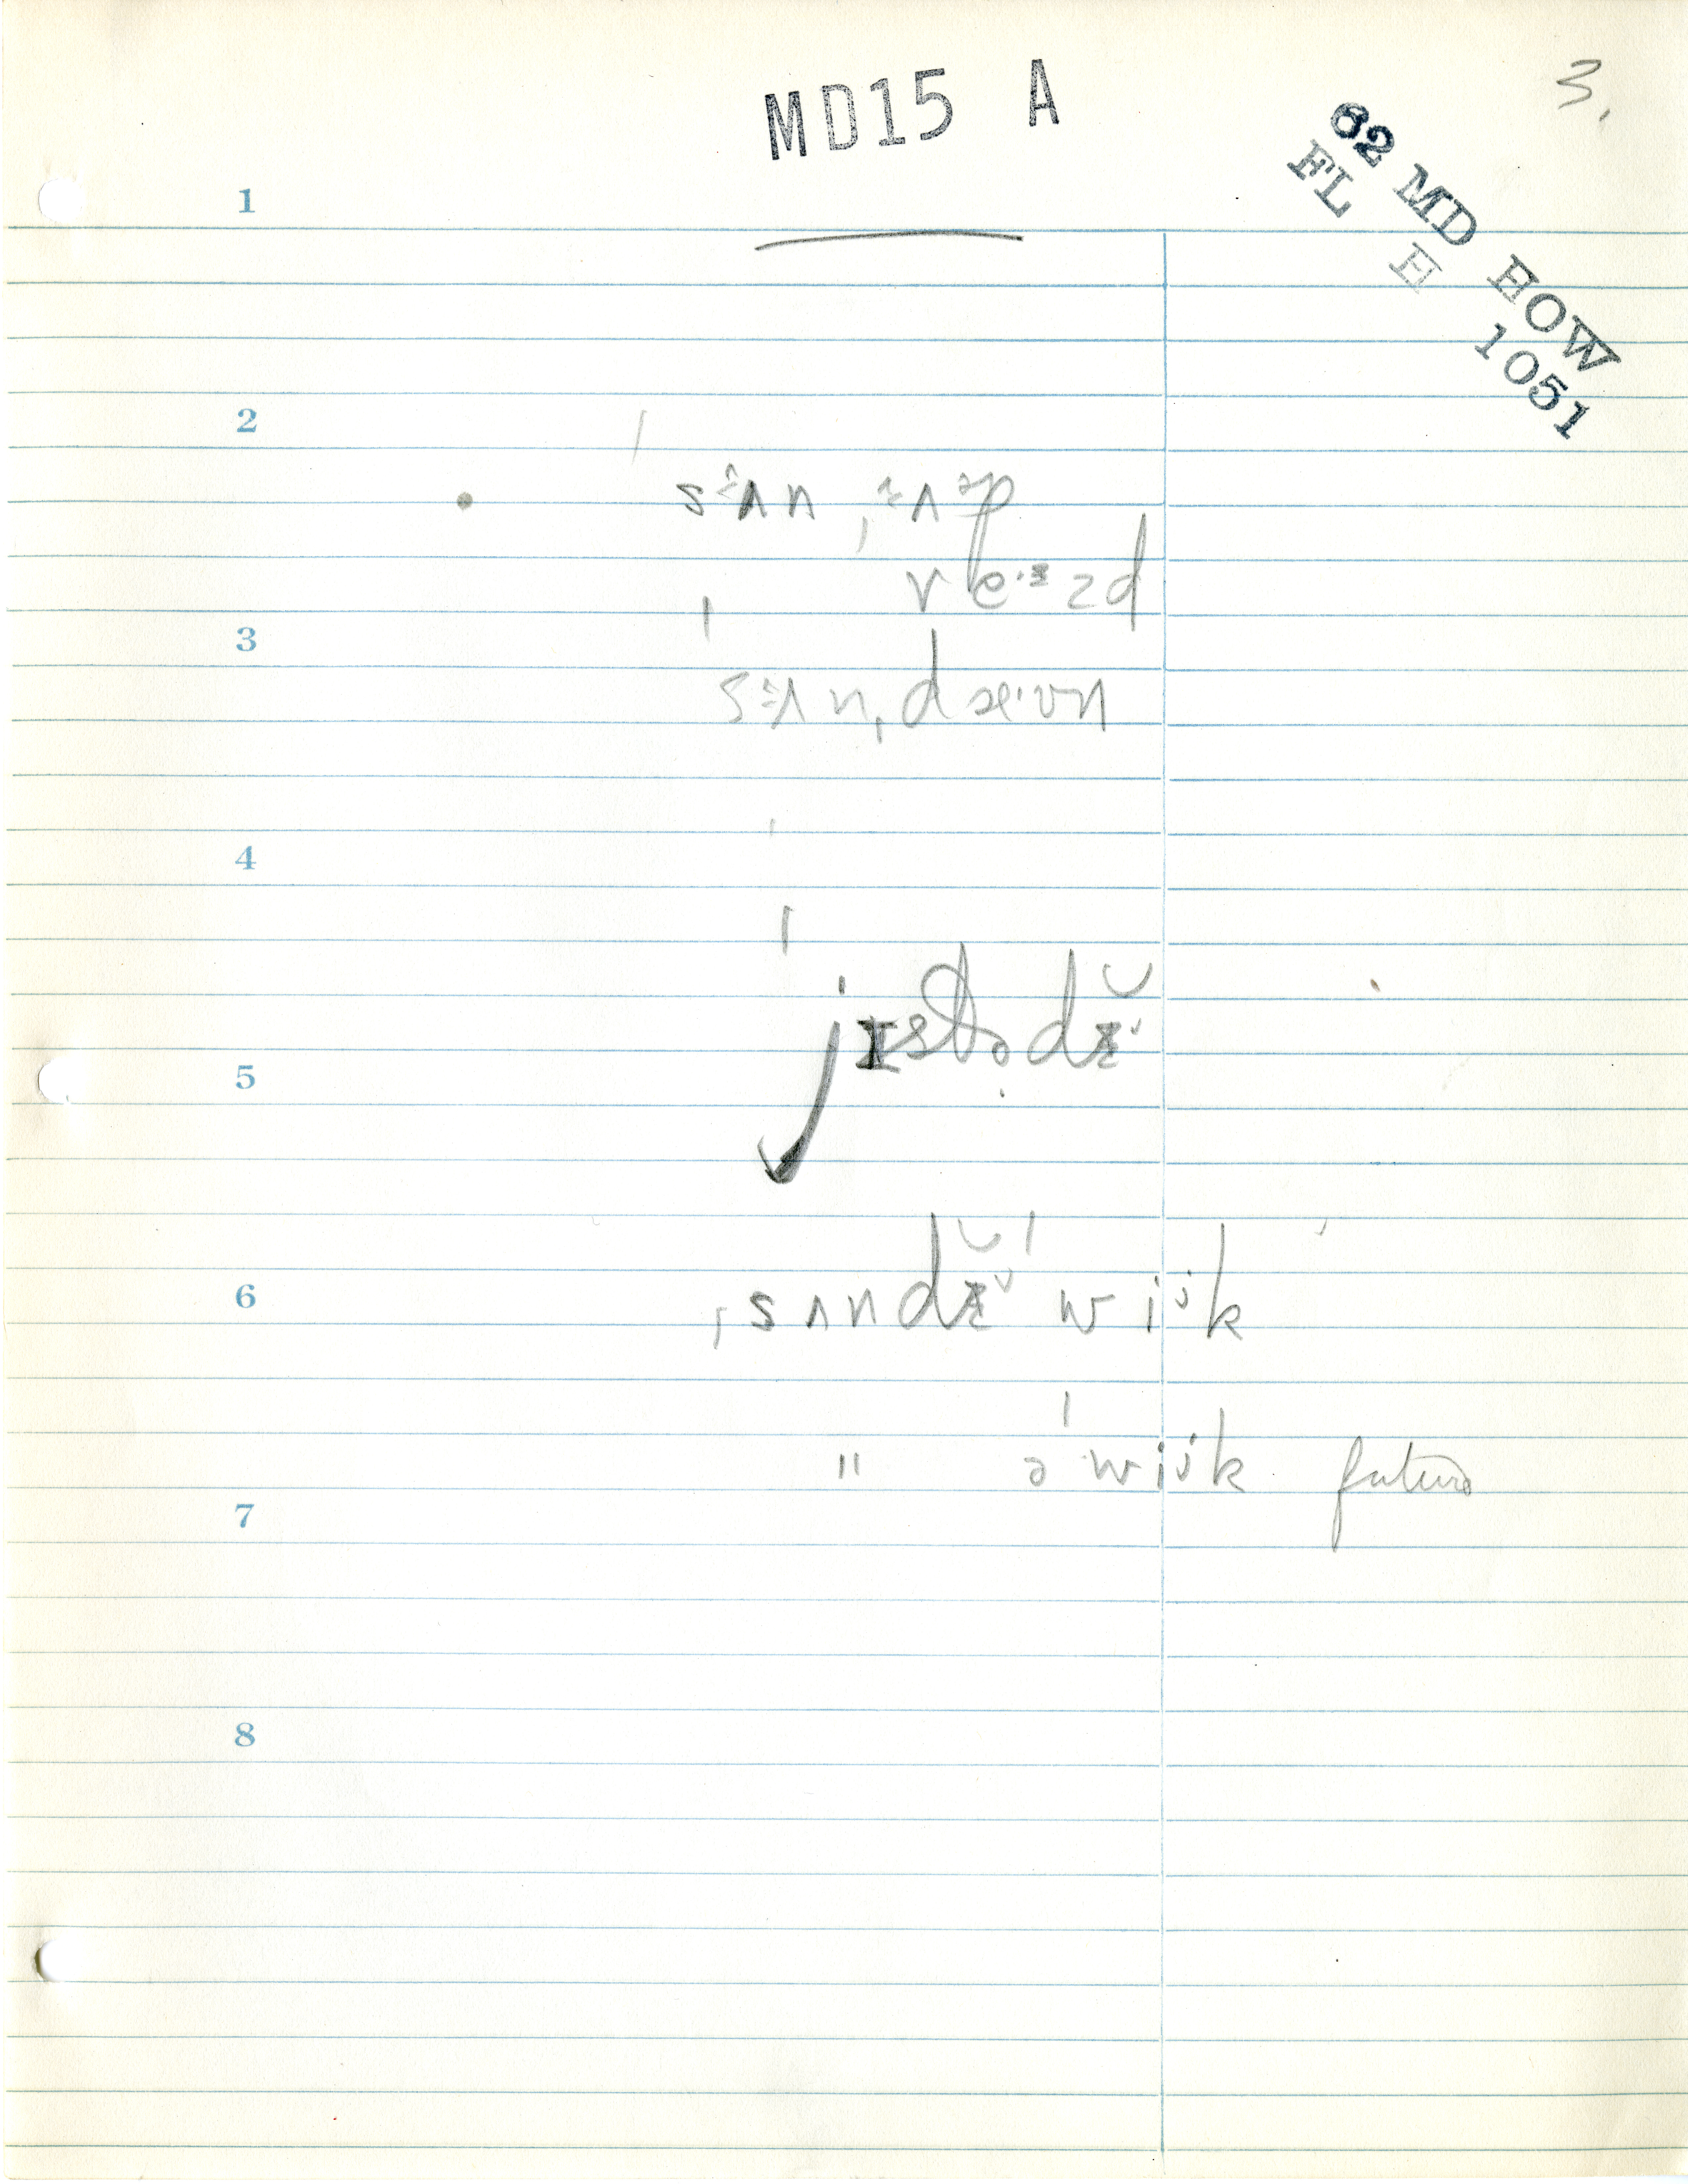 3.
MD15 A
62 MD HOW
FL E 1051
1
2
ˈsɜʌn ˌɜʌᵊp
re·ᶻzd
3
ˈsɜʌnˌdæ·ʊn
4
ˈjɪstɚ̣dɪ̆ˇ
5
6
ˌsʌndɪ̆ˇ ˈwiˇk
" ə ˈwiˇk future
7
8